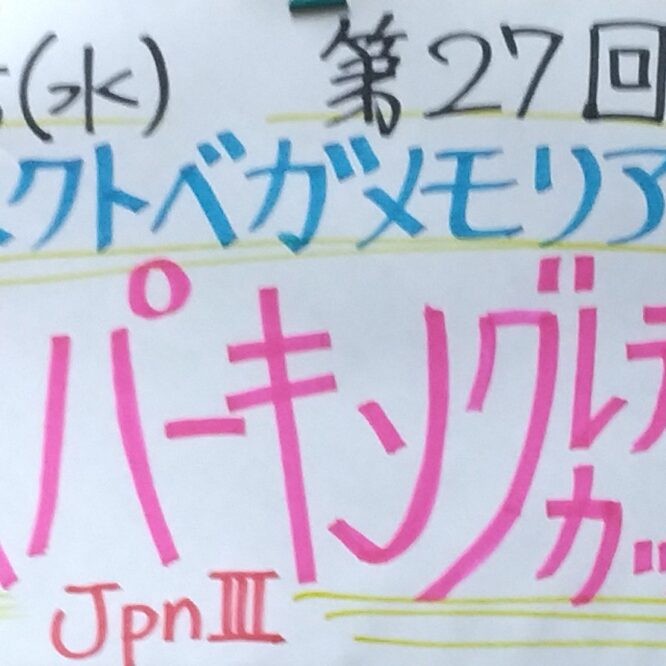 (水) 第27回
クトベガメモリア
パーキングレ
カッ
JpnⅢ